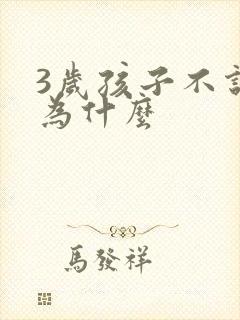 3歲孩子不
為什麼
馬發祥